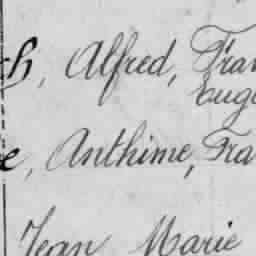 h, Alfred, Fran
Eugè
e, Anthime, Fra
Jean Marie